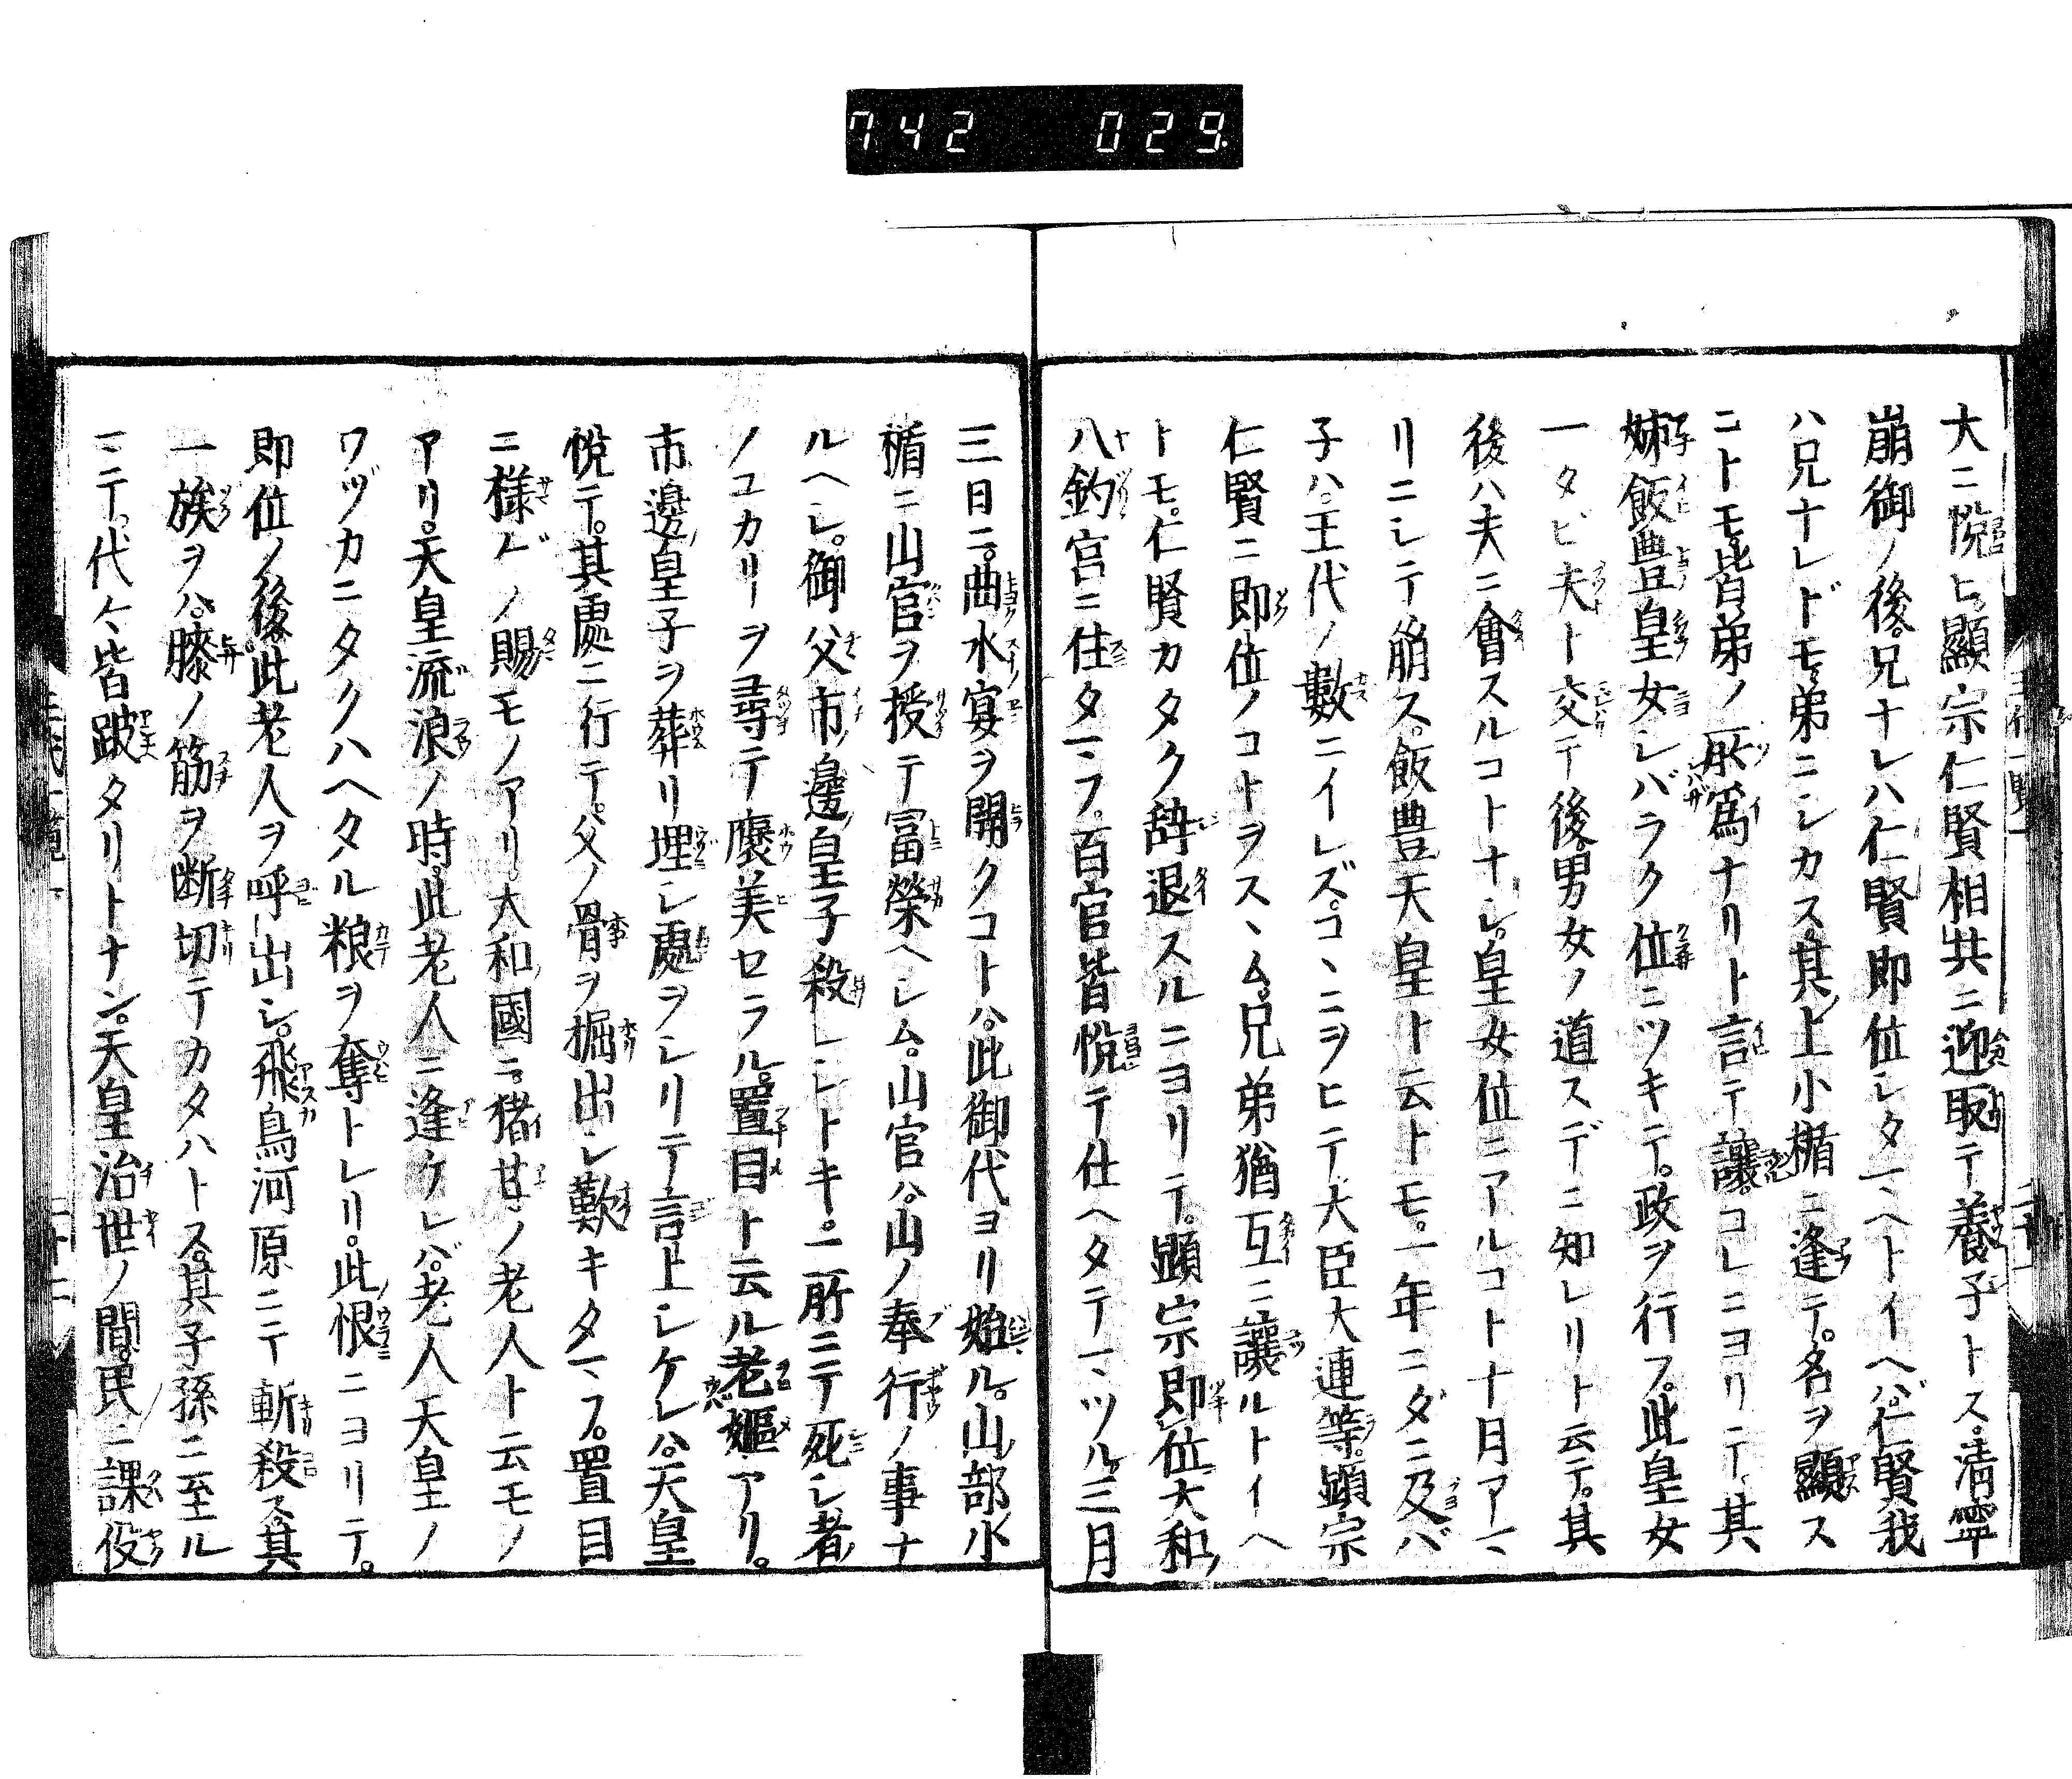 742 029
大ニ悦ヒ。顯宗仁賢相共ニ迎取テ養子トス。清寧
崩御ノ後。兄ナレハ仁賢即位シタマヘトイヘバ。仁賢我
ハ兄ナレドモ。弟ニシカス。其上小楯ニ逢テ。名ヲ顯ス
コトモ。皆弟ノ所爲ナリト言テ讓。コレニヨリテ。其
姉飯豊皇女シバラク位ニツキテ。政ヲ行フ。此皇女
一タビ夫ト交テ後。男女ノ道スデニ知レリト云テ。其
後ハ夫ニ會スルコトナシ。皇女位ニアルコト十月アマ
リニシテ崩ス。飯豊天皇ト云トモ。一年ニダニ及バ
子ハ。王代ノ數ニイレズ。コヽニヲヒテ。大臣大連等。顯宗
仁賢ニ即位ノコトヲスヽム。兄弟猶互ニ讓ルトイヘ
トモ。仁賢カタク辞退スルニヨリテ。顯宗即位大和
八釣宮ニ住タマフ。百官皆悦テ仕ヘタテマツル。三月
三日ニ。曲水宴ヲ開クコトハ。此御代ヨリ始ル。山部小
楯ニ山官ヲ授テ冨榮ヘシム。山官ハ。山ノ奉行ノ事ナ
ルヘシ。御父市邊皇子殺レシトキ。一所ニテ死シ者
ノユカリヲ尋テ褒美セラル。置目ト云ル老嫗アリ。
市邊皇子ヲ葬リ埋シ處ヲシリテ言上シケレハ。天皇
悦テ。其處ニ行テ。父ノ骨ヲ掘出シ歎キタマフ。置目
ニ様〲ノ賜モノアリ。大和國ニ。猪甘ノ老人ト云モノ
アリ。天皇流浪ノ時。此老人ニ逢ケレバ。老人天皇ノ
ワヅカニタクハヘタル粮ヲ奪トレリ。此恨ニヨリテ。
即位ノ後。此老人ヲ呼出シ。飛鳥河原ニテ斬殺ス。其
一族ヲハ。膝ノ筋ヲ断切テカタハトス。其子孫ニ至ル
マテ。代々皆跛タリトナン。天皇治世ノ間。民ニ課役